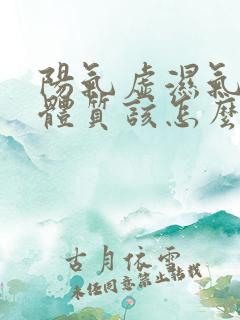 陽氣虛濕氣
體質該怎麼
古月依雲
未任同意禁止轉載